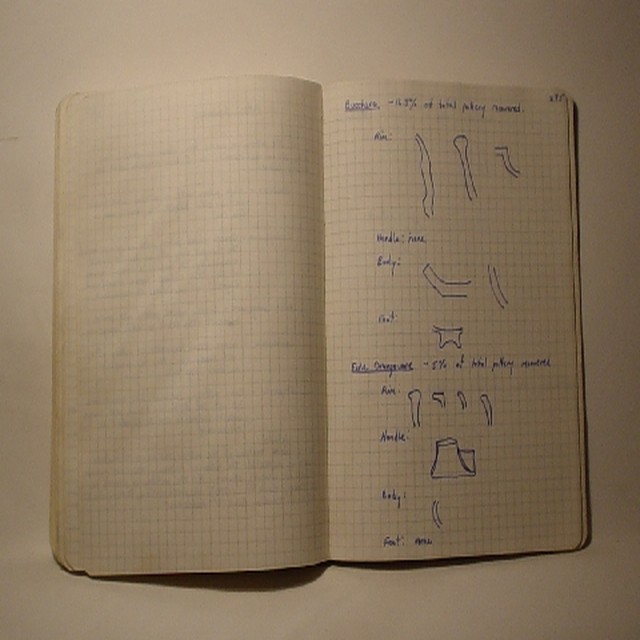 ~16.3% of total pottery recovered.
Rim:
Handle: none
Body:
Foot:
Fine Orangeware ~5% of total pottery recovered
Rim:
Handle:
Body:
Foot: none